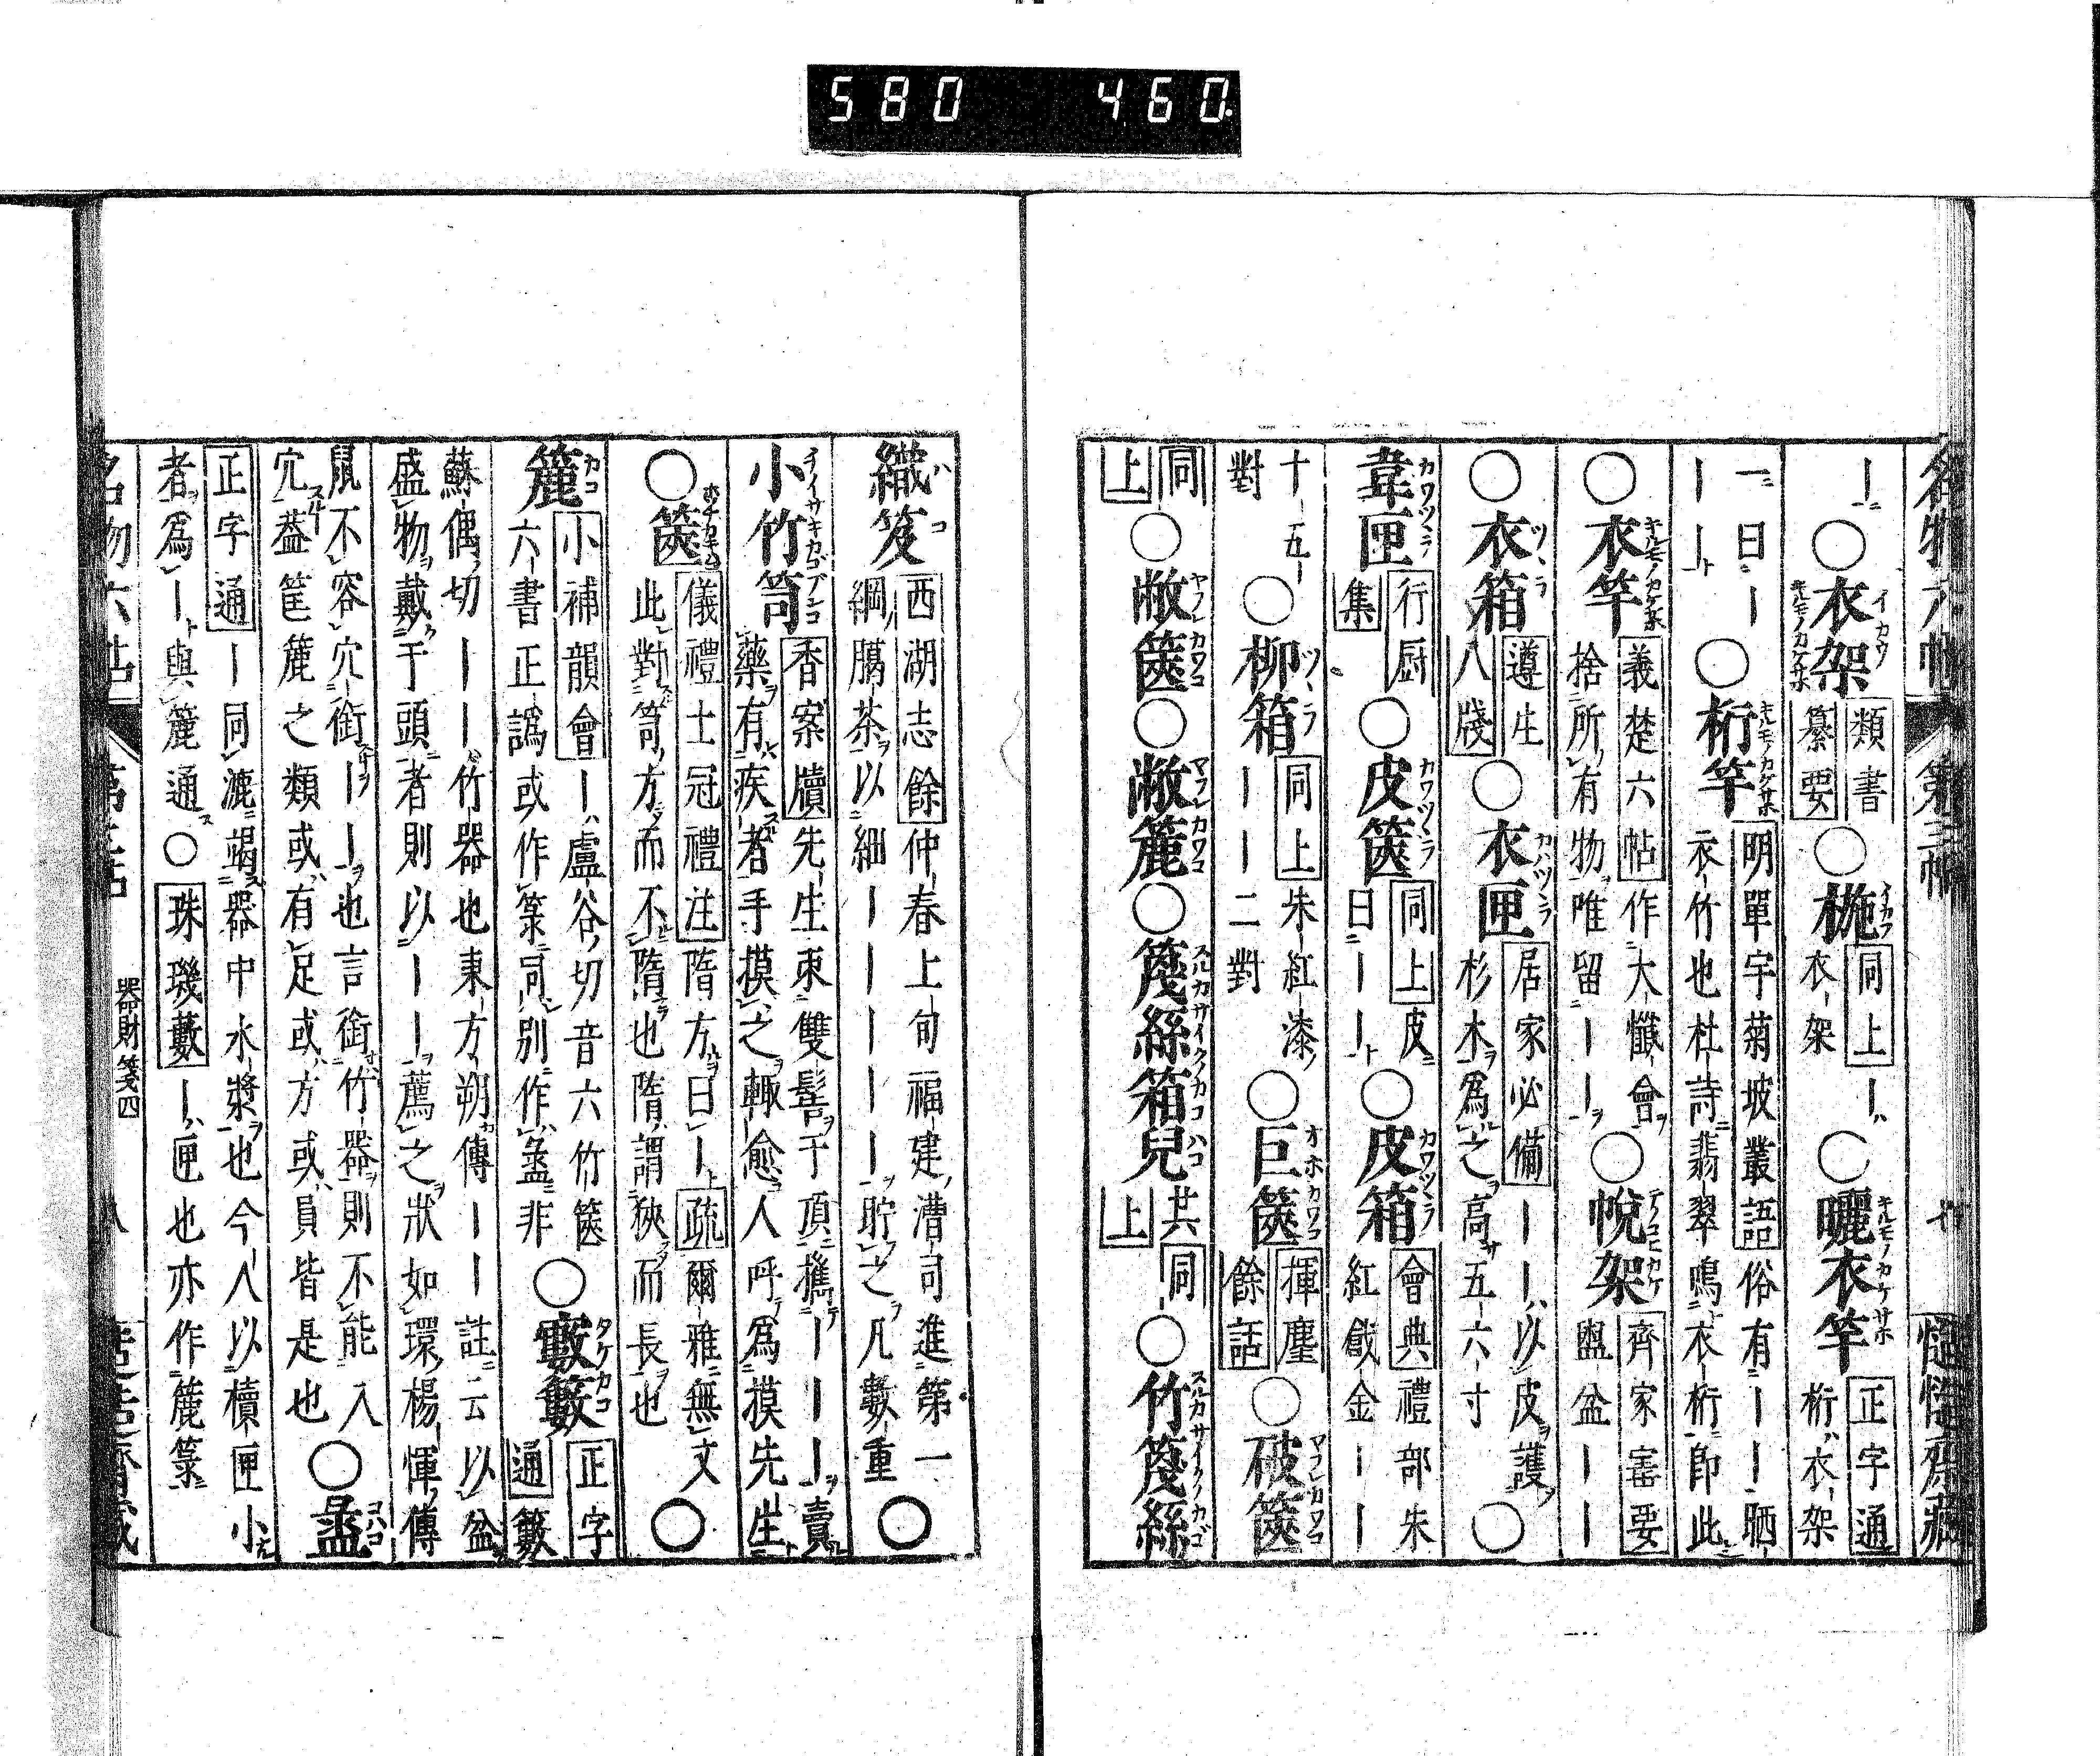 名物六帖 第三帖 七
｜○衣架類書纂要○椸同上｜衣架○曬衣竿正字通桁衣架
一曰｜｜｜○桁竿明單宇菊坡叢語俗有｜｜晒衣竹也杜詩翡翠鳴衣桁即此
○衣竿義楚六帖作大懺會捨所有物唯留｜｜○帨架齊家寚要盥盆｜｜
○衣箱遵生八牋○衣匣居家必備｜｜以皮護杉木爲之高五六寸○
韋匣行厨集○皮篋同上皮曰｜｜○皮箱會典禮部朱紅戧金｜｜
十五｜對○柳箱同上朱紅漆｜｜二對○巨篋揮麈餘話○破篋
同上○敝篋○敝簏○篾絲箱兒共同上○竹篾絲
織笈西湖志餘仲春上旬福建漕司進第一綱臈茶以細｜｜｜｜貯之凡數重○
小竹笥香案牘先生束雙髻于頂擕｜｜｜賣藥有疾者手摸之輒愈人呼爲摸先生
○篋儀禮士冠禮注隋方曰｜疏爾雅無文此對笥方而不隋也隋謂狹而長也○
簏小補韻會｜盧谷切音六竹篋六書正譌或作箓同別作盝非○窶籔正字通籔
蘇偶切｜｜竹器也東方朔傳｜｜註云以盆盛物戴于頭者則以｜｜薦之狀如環楊惲傳
鼠不容穴銜｜｜也言銜竹器則不能入穴葢筐簏之類或有足或方或員皆是也○盝
正字通｜同漉竭器中水漿也今人以櫝匣小者爲｜與簏通○珠璣藪｜匣也亦作簏箓
名物六帖 器財箋四 八
580 460